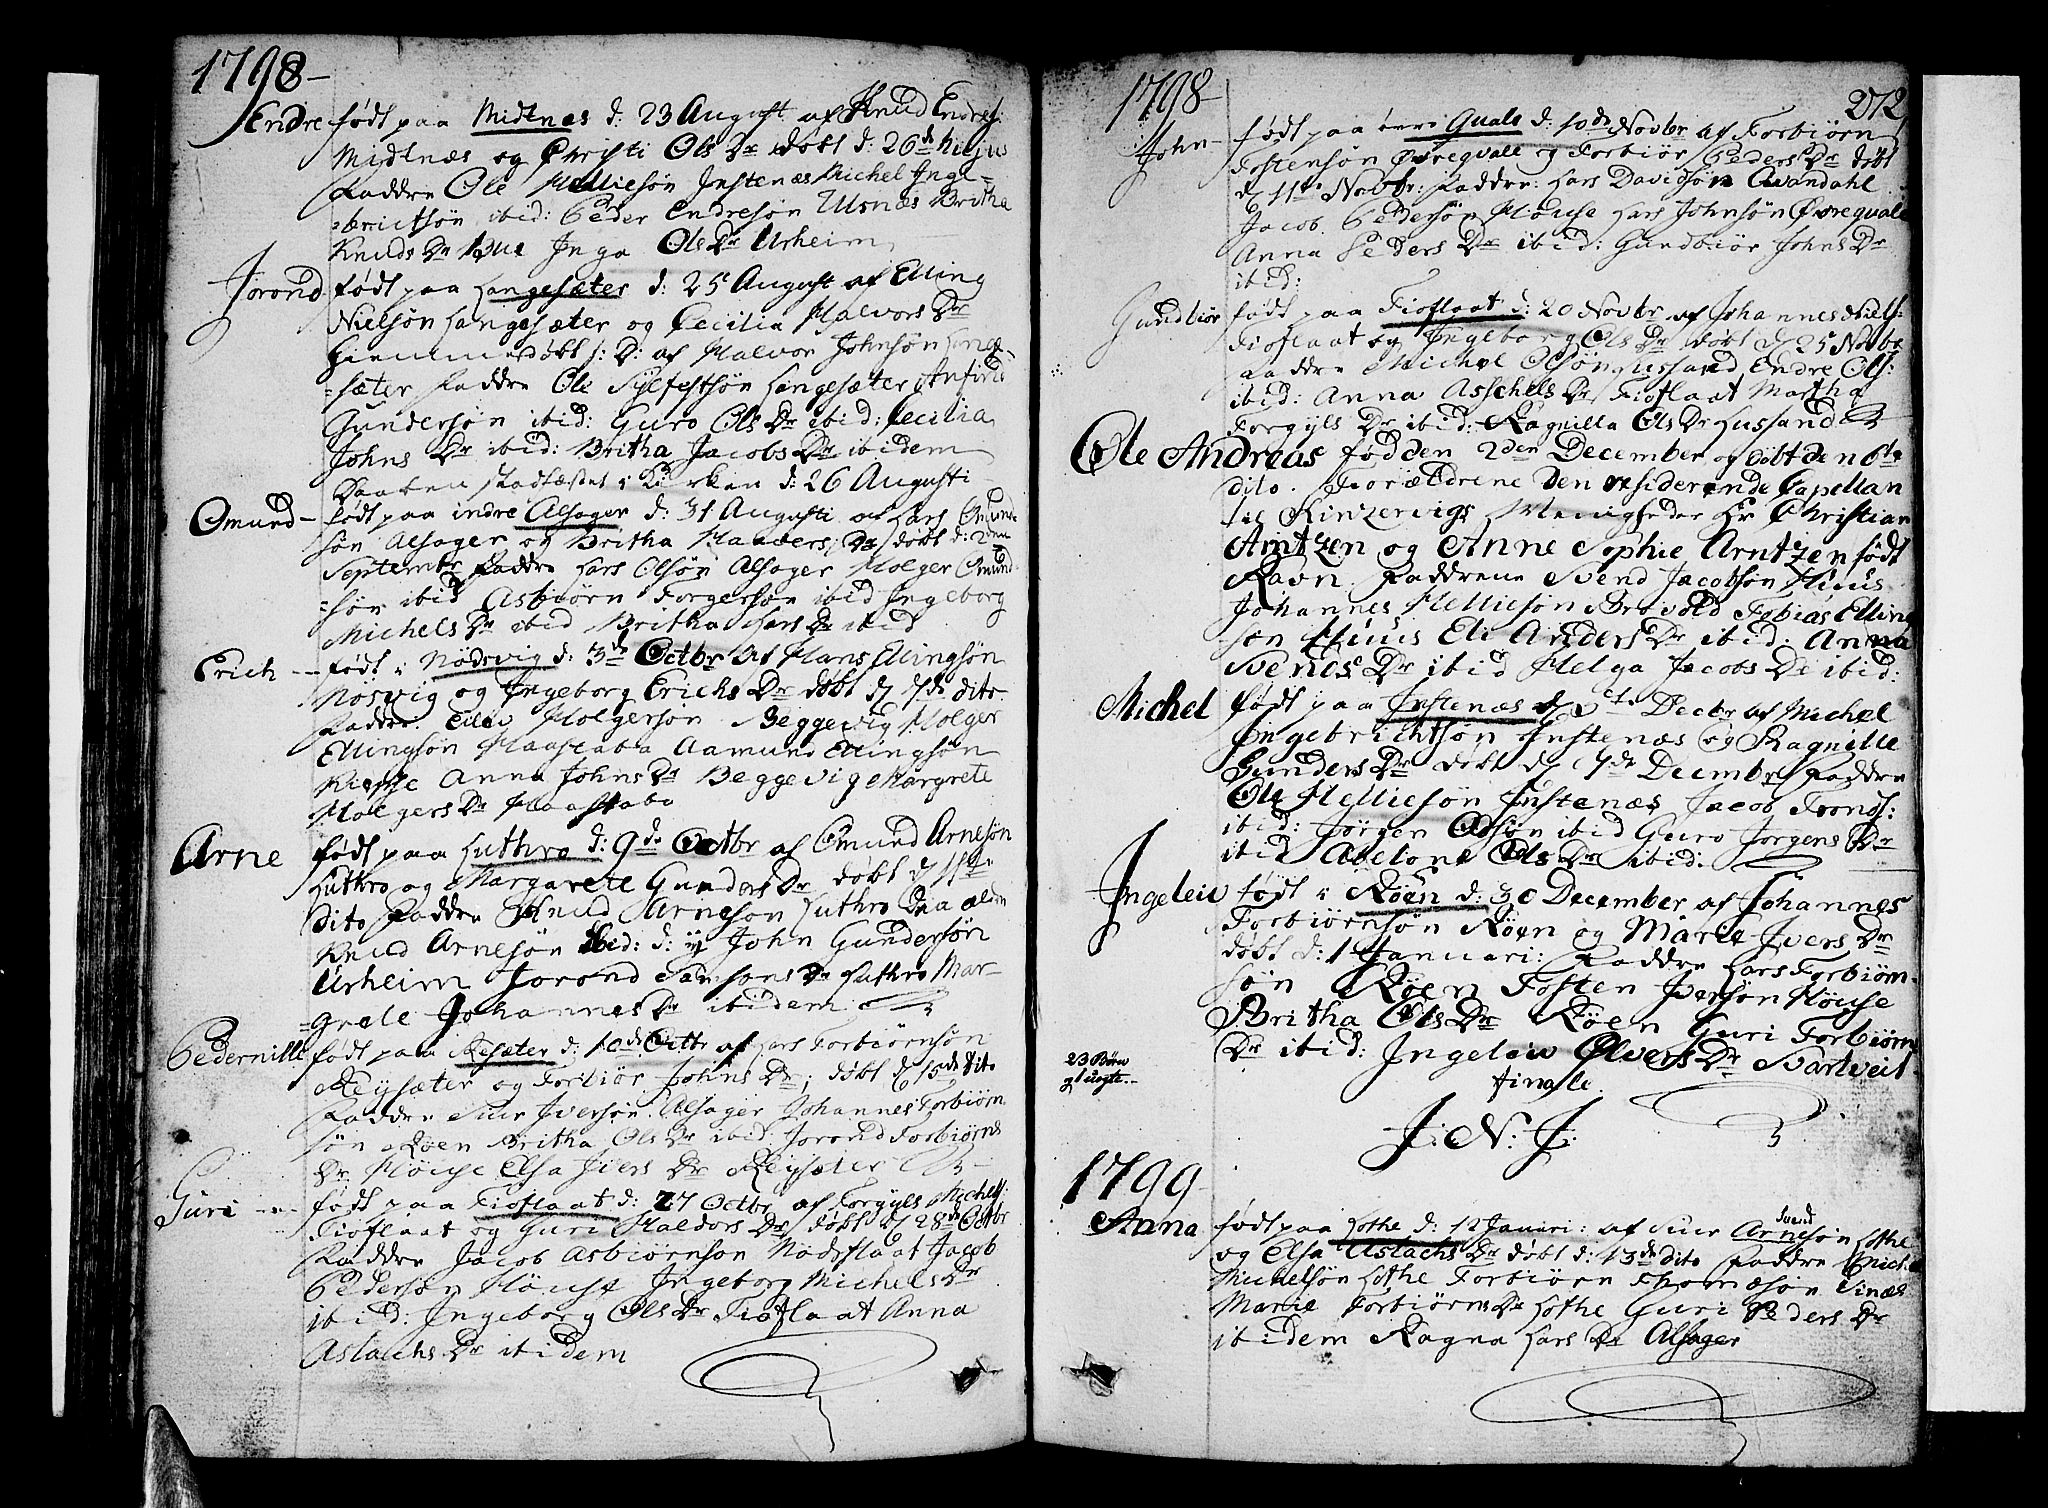 1798-
Endre født paa Midtnæs d: 23 August af Knud Endres:
Midtnæs og Christi Ols Dr døbt d: 26de hujus
Faddre Ole Helliesøn Instenæs Michel Inge-
=brictsøn ibid: Peder Endresøn Utsnæs Britha
Knuds Dr Bue Inga Ols Dr Urheim
Jorond født paa Langesæter d: 25 August af Elling
Nielsøn Langesæter og Cecilia Halvors Dr
hiemmedøbt s: D: af Halvor Johnsøn Lange-
=sæter Faddre Ole Sylfestsøn Langesæter Anfind
Gundersøn ibid: Guro Ols Dr ibid: Cecilia
Johns Dr ibid: Britha Jacobs Dr ibidem
Daaben stadfæstet i Kirken d: 26 Augusti
Omund- født paa indre Alsager d: 31 Augusti af Lars Omund
søn Alsager og Britha Haaders Dr døbt d: 2den
Septembr Faddre Lars Olsøn Alsager Holger Omund
=søn ibid Asbiørn Torgersøn ibid Ingeborg
Michels Dr ibid Britha Lars Dr ibid
Erich -- født i Nødsvig d: 3de Octbr af Hans Ellingsøn
Nøsvig og Ingeborg Erichs Dr døbt d 7de dito
Faddre Eilev Holgersøn Beggevig Holger
Ellingsøn Haastabø Aamund Ellingsøn
Anna Johns Dr Beggevig Margrete
Holgers Dr Haastabø
Arne født paa Luthro d: 9de Octbr af Omund Arnesøn
Luthro og Margarete Gunders Dr døbt d 11te
dito Faddre Knud Arnesøn Luthro den ældre
Knud Arnesøn ibid: d: y John Gundersøn
Urheim Jorond Samsons Dr Luthro Mar-
=grete Johannes Dr ibidem
Pedernille født paa Resæter d: 10de Octbr af Lars Torbiørnsøn
Reysæter og Torbiør Johns Dr; døbt d 15de dito
Faddre Siur Iversøn Alsager Johannes Torbiørn
søn Røen Britha Ols Dr ibid Jorond Torbiørns
Dr Høuse Elsa Ivers Dr Reysæter
Guri --- født paa Tioflaat d: 27 Octbr af Torgyls Michels:
Tioflaat og Guri Haldors Dr døbt d 28de Octbr
Faddre Jacob Asbiørnsøn Nødsflaat Jacob
Pedersøn Høuse Ingeborg Michels Dr
ibid: Ingeborg Ols Dr Tioflaat Anna
Aslachs Dr ibidem
1798-
272
John- født paa øvri Quale d: 10de Novbr af Torbiørn
Tostensøn Øvrequale og Torbiør Peders Dr døbt
d 11te Novbr: Faddre: Lars Davidsøn Qvandahl
Jacob Pedersøn Høuse Lars Johnsøn Øvrequale
Anna Peders Dr ibid: Gundbiør Johns Dr
ibid:
Gundbiør født paa Tioflaat d: 20 Novbr af Johannes Niels:
Tioflaat og Ingeborg Ols Dr døbt d 25 Novbr
Faddre Michel Olsøn Hussand Endre Ols:
ibid: Anna Asschels Dr Tioflaat Martha
Torgyls Dr ibid: Ragnilla Ols Dr Hussand
Ole Andreas fød den 2den December og døbt den 6te
dito. Forældrene Den residerende Capellan
til Kinzervigs Menigheder Hr Christian
Arntzen og Anne Sophie Arntzen født
Ravn. Faddrene Svend Jacobsøn Huus
Johannes Helliesøn Brovold Tobias Elling
søn Huus Eli Anders Dr ibid: Anna
Svends Dr ibid Helga Jacobs Dr ibid:
Michel født paa Instenæs d te Decbr af Michel
Ingebrichtsøn Instenæs og Ragnille
Gunders Dr døbt d 7de Decembr Faddre
Ole Helliesøn Instenæs Jacob Tronds:
ibid: Jørgen Odsøn ibid Guro Jørgens Dr
ibid Abelone Ols Dr ibid:
Ingeleiv født i Røen d: 30 December af Johannes
Torbiørnsøn Røen og Marie Ivers Dr
døbt d: 1 Januari: Faddre Lars Torbiørn-
søn Røen Tosten Iversøn Høuse
Britha Ols Dr Røen Guri Torbiørns
Dr ibid: Ingeleiv Ølvers Dr Svartveit
finale.
23 Børn
J: N: J:
1799-
Anna født paa Lothe d: 12 Januari: af Siur Arnesøn Lothe
Svend
og Elsa Aslachs Dr døbt d: 13de dito Faddre Michel
Michelsøn Lothe Torbiørn Thomæsøn Tinæs
Marie Torbiørns Dr Lothe Guri Peders Dr
ibidem Ragna Lars Dr Alsager